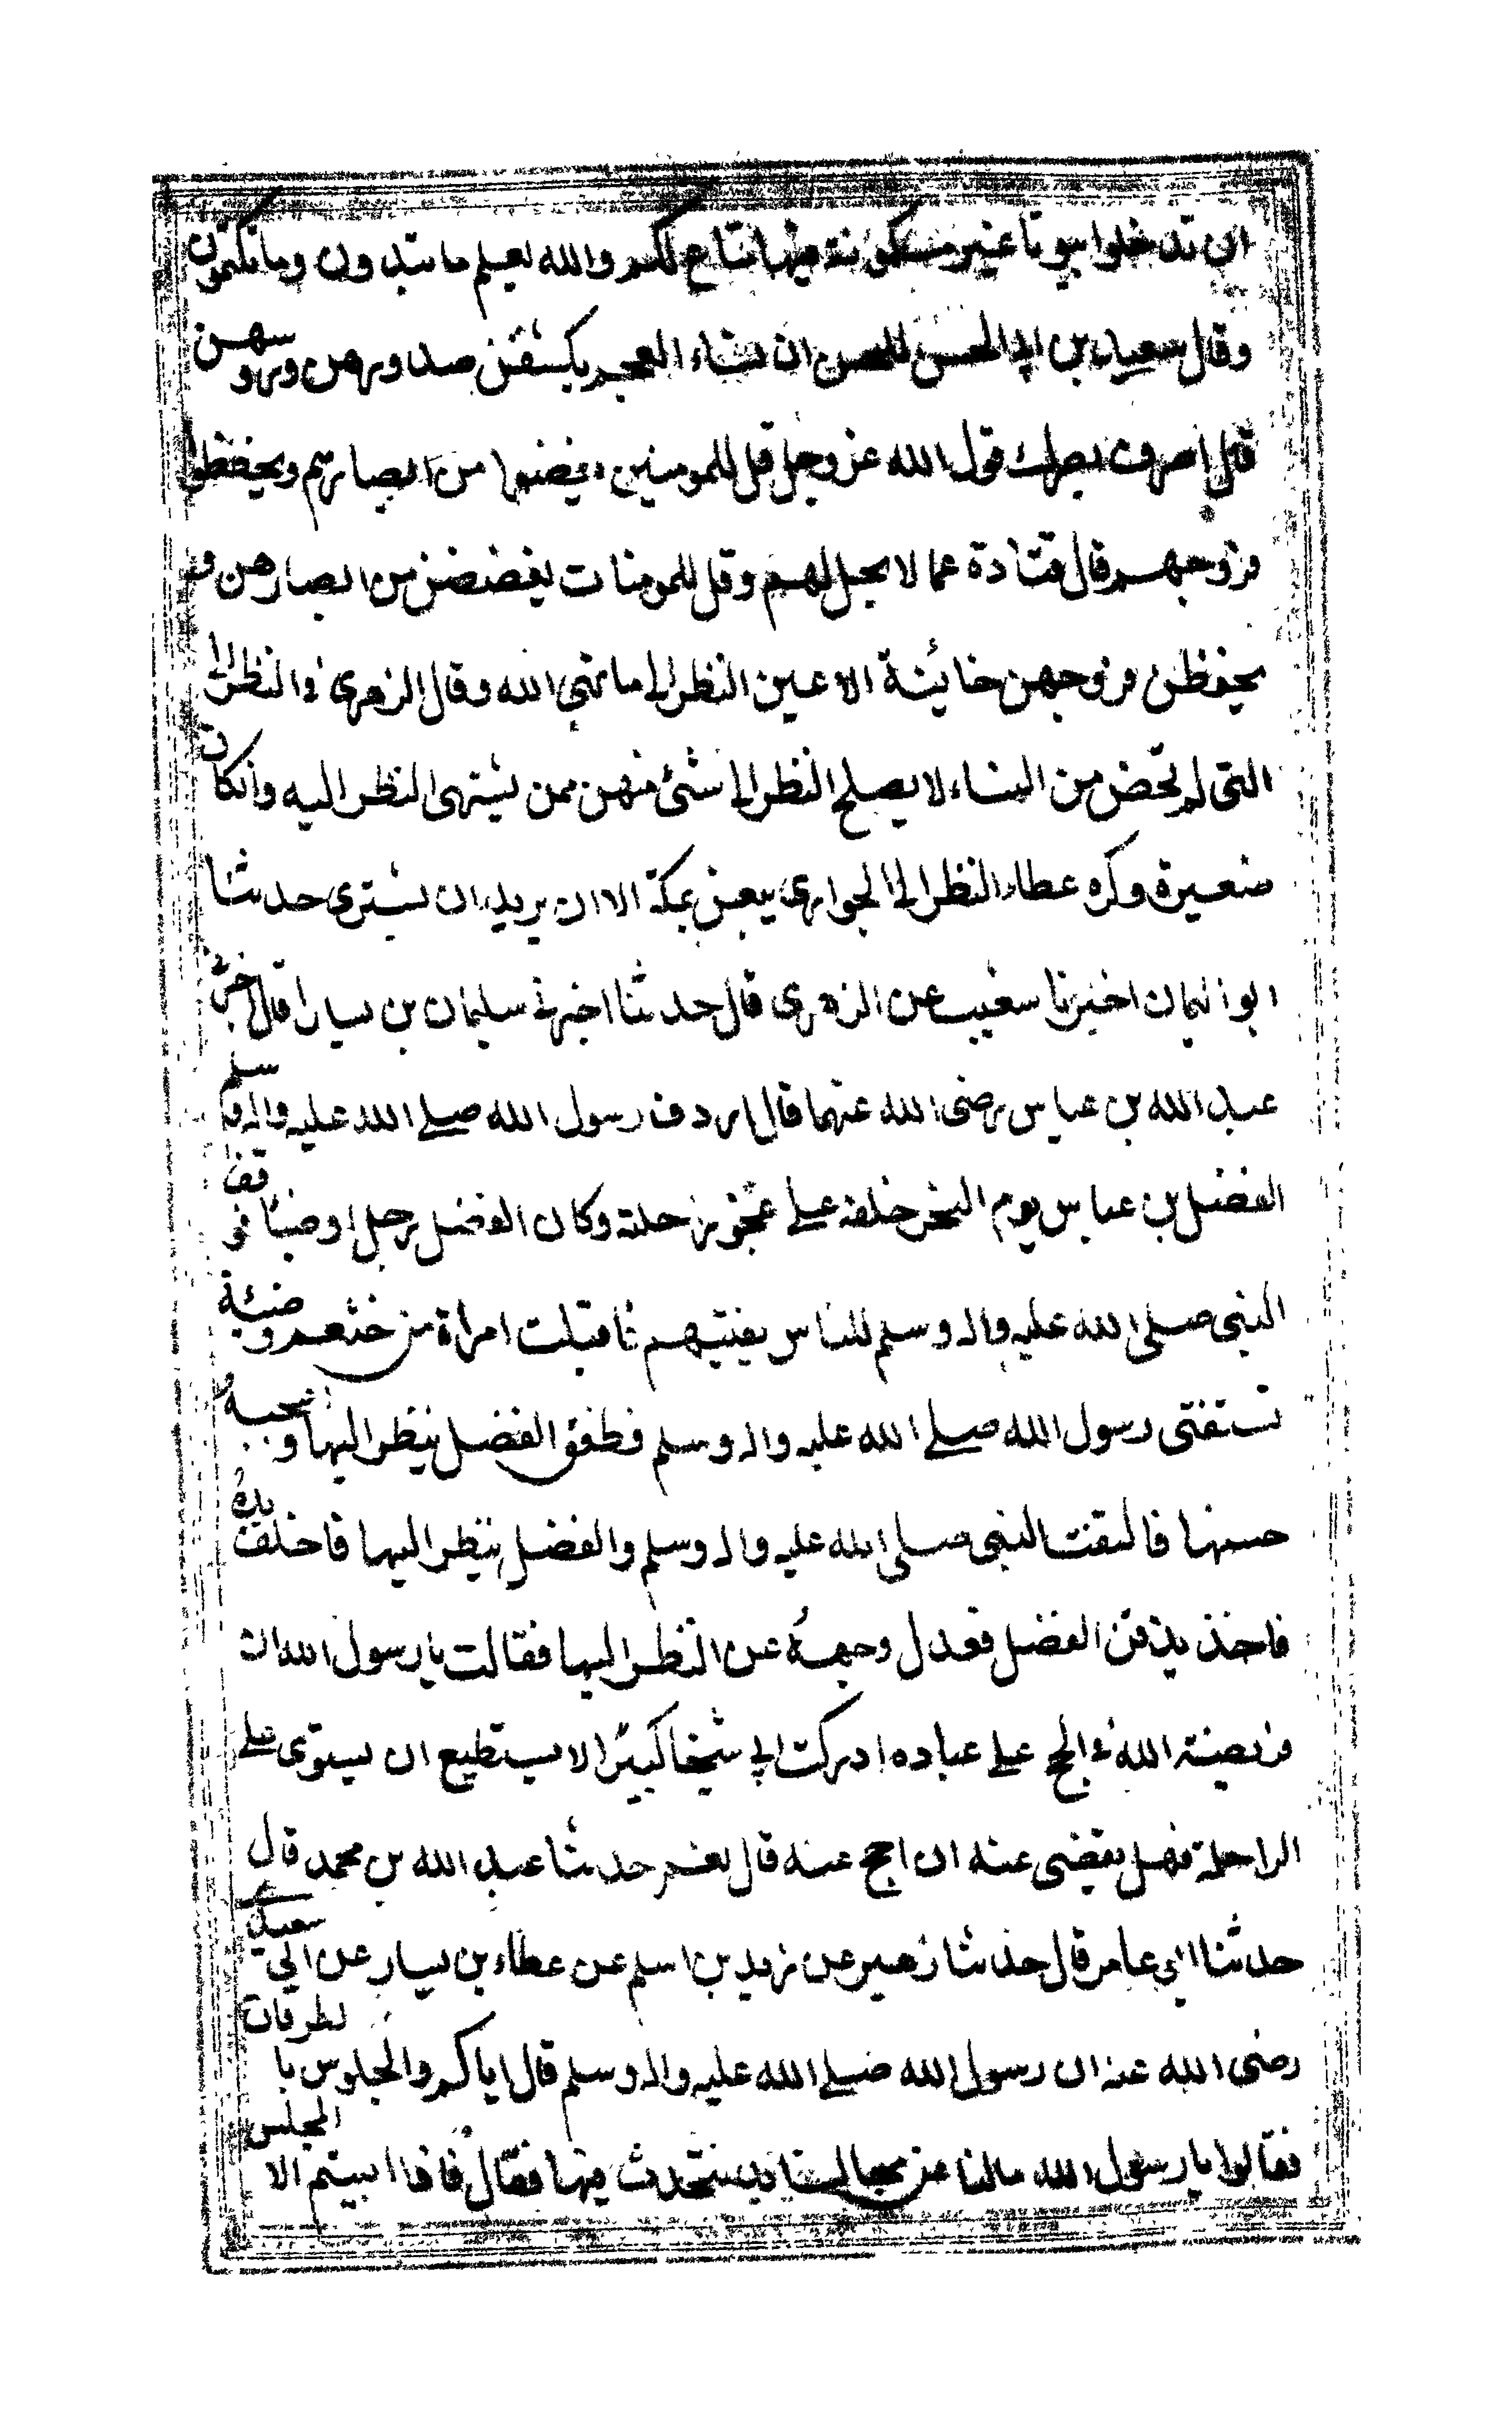 ان تدخلوا بيوتا غير مسكونة فيها متاع لكم والله يعلم ما تبدون وما تكتمون
وقال سعيد بن ابي الحسن للحسن ان نساء العجم يكشفن صدورهن وروسهن
قال اصرف بصرك قول الله عز وجل قل للمومنين يغضوا من ابصارهم ويحفظوا
فروجهم قال قتادة عما لا يحل لهم وقل للمومنات يغضضن من ابصارهن و
يحفظن فروجهن خائنة الاعين النظر الى ما نهى الله وقال الزهرى فى النظر الى
التى لم تحض من النساء لا يصلح النظر الى شئ منهن ممن يشتهى النظر اليه وان كانت
صغيرة وكره عطاء النظر الى الجوارى يبعن بمكة الا ان يريد ان يشترى حدثنا
ابو اليمان اخبرنا شعيب عن الزهرى قال حدثنا اخبرنى سليمان بن يسار قال اخبرنى
عبد الله بن عباس رضى الله عنهما قال اردف رسول الله صلى الله عليه واله وسلم
الفضل بن عباس يوم النحر خلفه على عجز راحلته وكان الفضل رجلا وضيئا فوقف
النبى صلى الله عليه واله وسلم للناس يفتيهم فاقبلت امراة من خثعم وضيئة
تستفتى رسول الله صلى الله عليه واله وسلم فطفق الفضل ينظر اليها واعجبه
حسنها فالتفت النبى صلى الله عليه واله وسلم والفضل ينظر اليها فاخلف يده
فاخذ بذقن الفضل فعدل وجهه عن النظر اليها فقالت يا رسول الله ان
فريضة الله فى الحج على عباده ادركت ابى شيخا كبيرا لا يستطيع ان يستوى على
الراحلة فهل يقضى عنه ان احج عنه قال نعم حدثنا عبد الله بن محمد قال
حدثنا ابى عامر قال حدثنا زهير عن زيد بن اسلم عن عطاء بن يسار عن ابى سعيد
رضى الله عنه ان رسول الله صلى الله عليه واله وسلم قال اياكم والجلوس بالطرقات
فقالوا يا رسول الله مالنا من مجالسنا بد نتحدث فيها فقال فاذا ابيتم الا المجلس